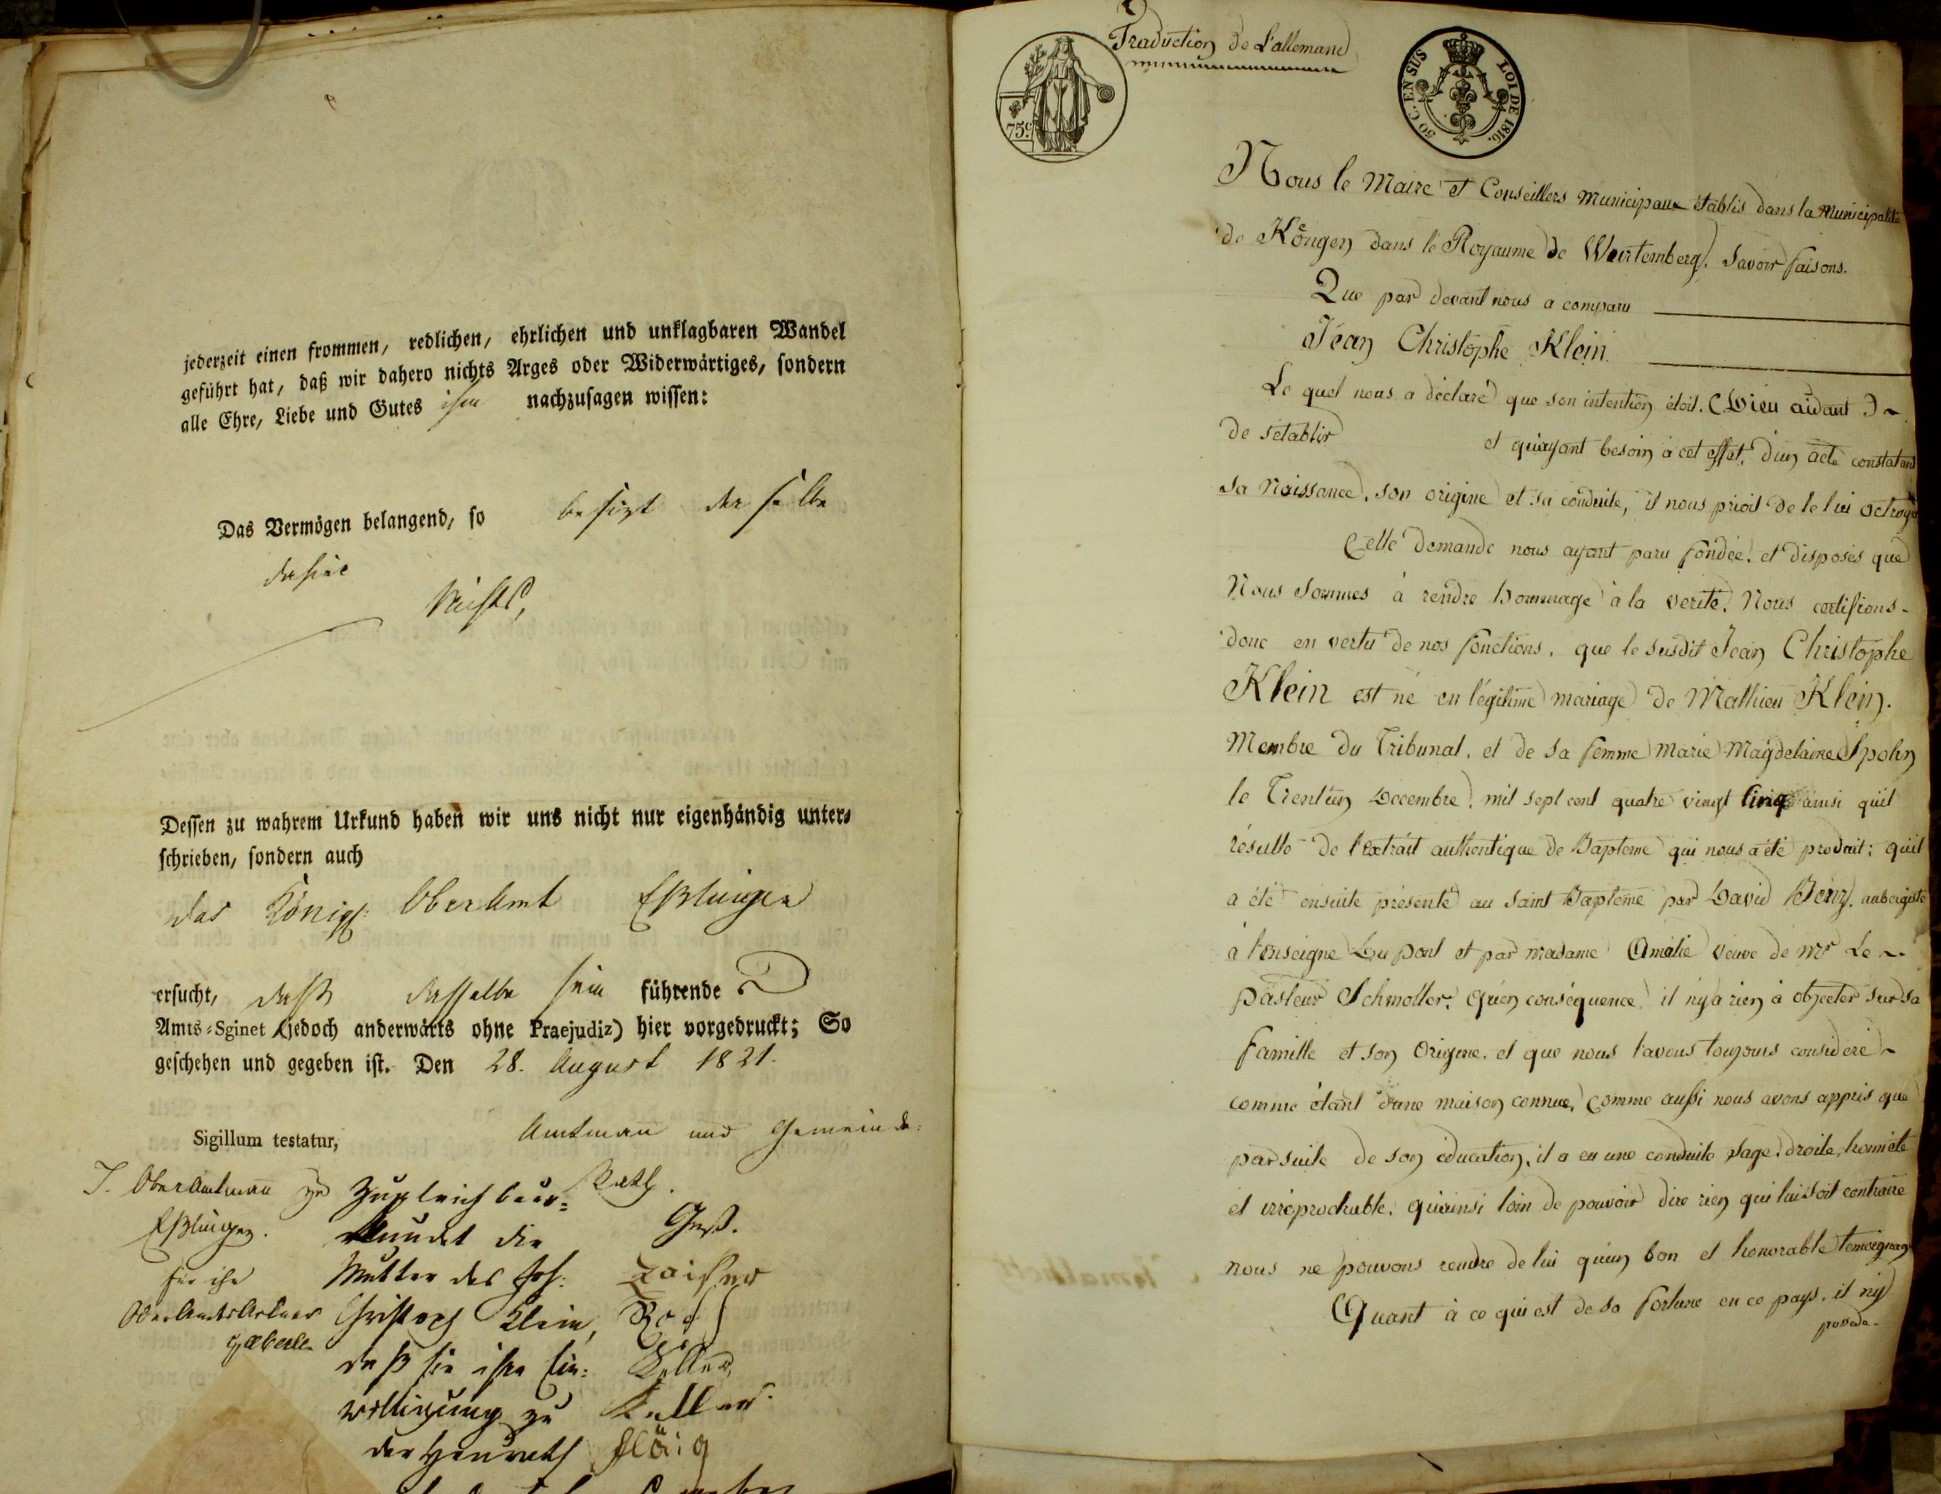 jederzeit einen frommen, redlichen, ehrlichen und unklagbaren Wandel
geführt hat, daß wir dahero nichts Arges oder Widerwärtiges, sondern
alle Ehre, Liebe und Gutes ihm nachzusagen wissen:
Das Vermögen belangend, so besizt derselbe
dahier
Nichts,
Dessen zu wahrem Urkund haben wir uns nicht nur eigenhändig unter-
schrieben, sondern auch
das Königl: OberAmt Eßlingen
ersucht, daß dasselbe sein führende
Amts-Sginet (jedoch anderwärts ohne Praejudiz) hier vorgedruckt; So
geschehen und gegeben ist. Den 28. August 1821.
Sigillum testatur,
Amtmann und Gemeinde-
Rath.
T. Oberamtmann zu
Eßlingen.
für ihn
OberAmtsActuar
zugleich beur-
kundet die
Mutter des Joh:
Christoph Klein,
daß sie ihre Ein-
willigung zu
der Heurath
Zaiser
Koch
Keller
Traduction de L'allemand
75 c.
30 C. EN SUS LOI DE 1816.
Nous le Maire et Conseillers Municipaux établis dans la Municipalité
de Köngen dans le Royaume de Wurtemberg. Savoir faisons.
Que par devant nous a comparu
Jean Christophe Klein
Le quel nous a déclaré que son intention étoit. (Dieu aidant)
de s'etablir et qu'ayant besoin à cet effet, d'un acte constatant
sa Naissance, son origine et sa conduite, il nous prioit de le lui octroyer
Cette demande nous ayant paru fondée, et disposés que
Nous sommes à rendre hommage à la verité, Nous certifions-
donc en vertu de nos fonctions, que le susdit Jean Christophe
Klein est né en légitime mariage de Mathieu Klein.
Membre du Tribunal, et de sa femme Marie Magdelaine Spohn
le Trentun Decembre, mil sept cent quatre vingt cinq ainsi qu'il
résulte de l'extrait authentique de Bapteme qui nous a été produit; qu'il
a été ensuite présenté au saint Bapteme par David aubergiste
à l'enseigne Du pont et par madame Amélie veuve de Mr Le
pasteur Schmoller; qu'en conséquence il n'y a rien à objecter sur sa
famille et son Origine, et que nous l'avons toujours consideré
comme étant d'une maison connue, Comme aussi nous avons appris que
par suite de son éducation, il a eu une conduite sage, droite, honnête
et irréprochable; qu'ainsi loin de pouvoir dire rien qui lui soit contraire
nous ne pouvons rendre de lui qu'un bon et honorable temoignage
Quant à ce qui est de sa fortune en ce pays, il n'y
possede-